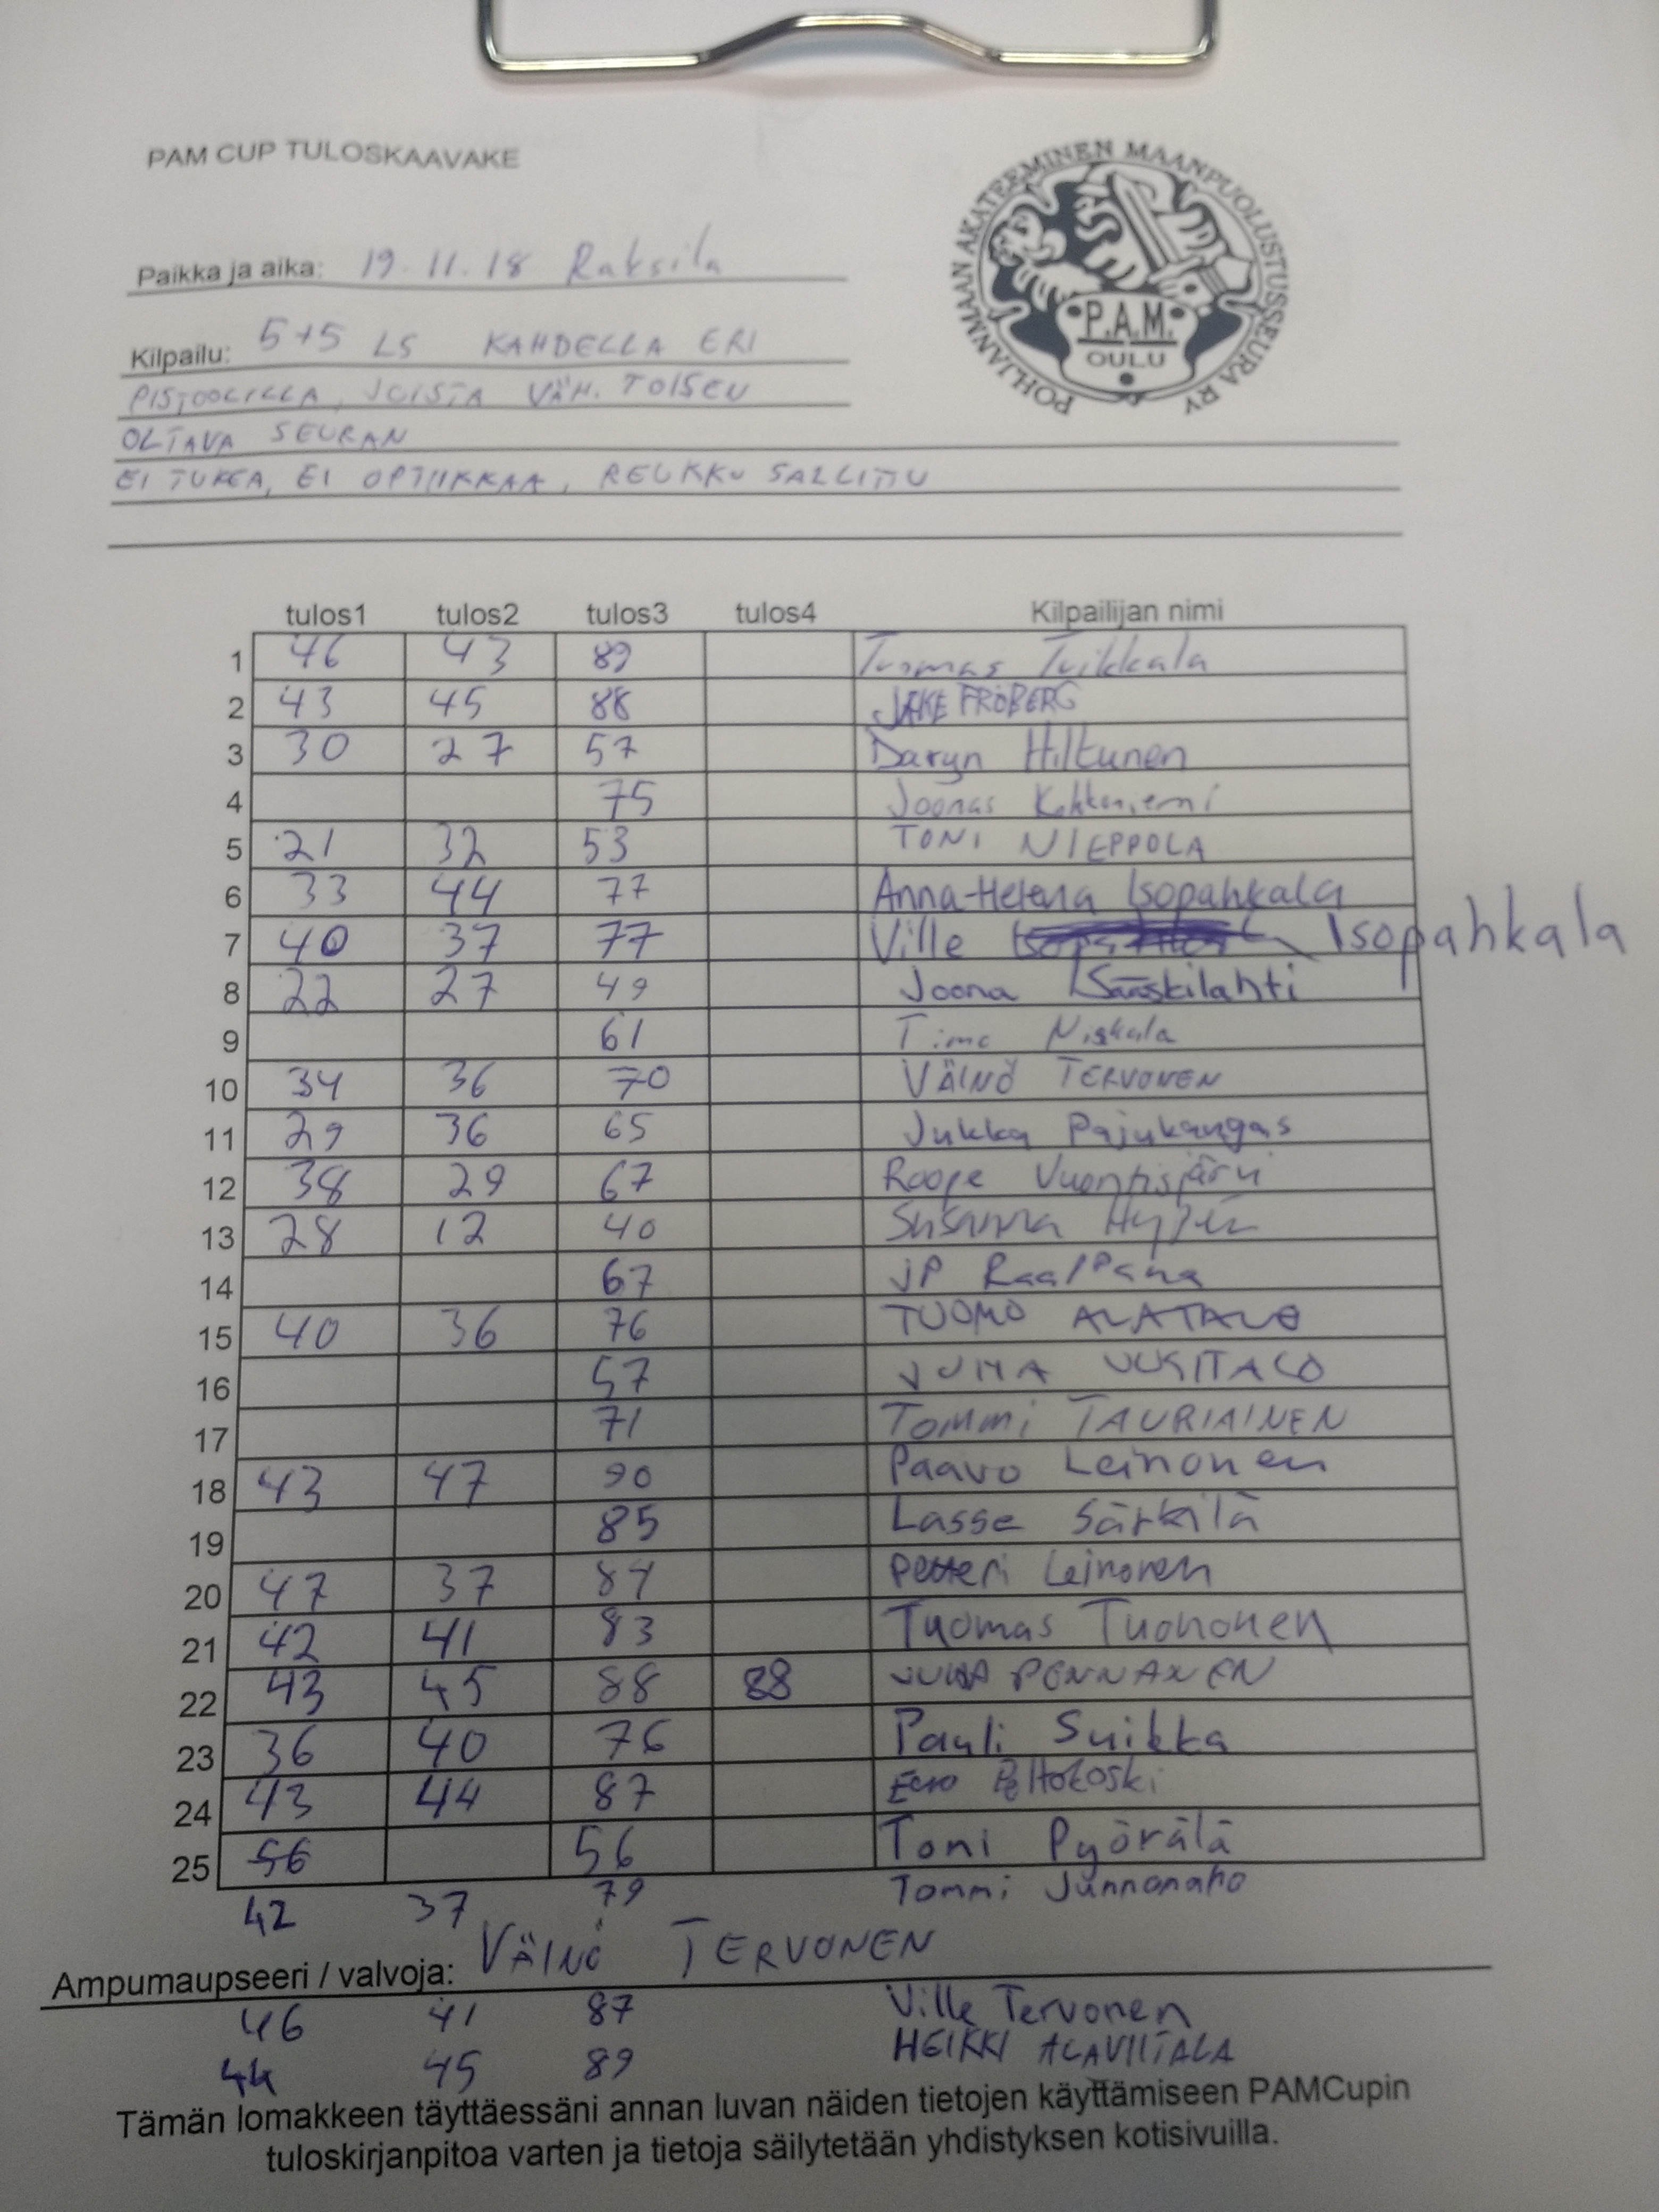 PAM CUP TULOSKAAVAKE
POHJANMAAN AKATEEMINEN MAANPUOLUSTUSSEURA RY
P.A.M.
OULU
Paikka ja aika: 19.11.18 Raksila
Kilpailu: 5+5 LS KAHDELLA ERI
PISTOOLILLA, JOISTA VÄH. TOISEN
OLTAVA SEURAN
EI TUKEA, EI OPTIIKKAA, REUKKU SALLITTU
tulos1 tulos2 tulos3 tulos4 Kilpailijan nimi
1 46 43 89 Tuomas Tuikkala
2 43 45 88 JAKE FRÖBERG
3 30 27 57 Daryn Hiltunen
4 75 Joonas Kokkoniemi
5 21 32 53 TONI NIEPPOLA
6 33 44 77 Anna-Helena Isopahkala
7 40 37 77 Ville Isopahkala
8 22 27 49 Joona
9 61 Timo Niskala
10 34 36 70 VÄINÖ TERVONEN
11 29 36 65 Jukka Pajukangas
12 38 29 67 Roope Vuontisjärvi
13 28 12 40 Susanna
14 67 JP
15 40 36 76 TUOMO ALATALO
16 57 JUHA UUSITALO
17 71 Tommi TAURIAINEN
18 43 47 90 Paavo Leinonen
19 85 Lasse Särkilä
20 47 37 84 Petteri Leinonen
21 42 41 83 Tuomas Tuononen
22 43 45 88 88 JUHA PENNANEN
23 36 40 76 Pauli Suikka
24 43 44 87 Eero Peltokoski
25 56 56 Toni Pyörälä
42 37 79 Tommi Junnonaho
Ampumaupseeri / valvoja: VÄINÖ TERVONEN
46 41 87 Ville Tervonen
44 45 89 HEIKKI ALAVIITALA
Tämän lomakkeen täyttäessäni annan luvan näiden tietojen käyttämiseen PAMCupin
tuloskirjanpitoa varten ja tietoja säilytetään yhdistyksen kotisivuilla.